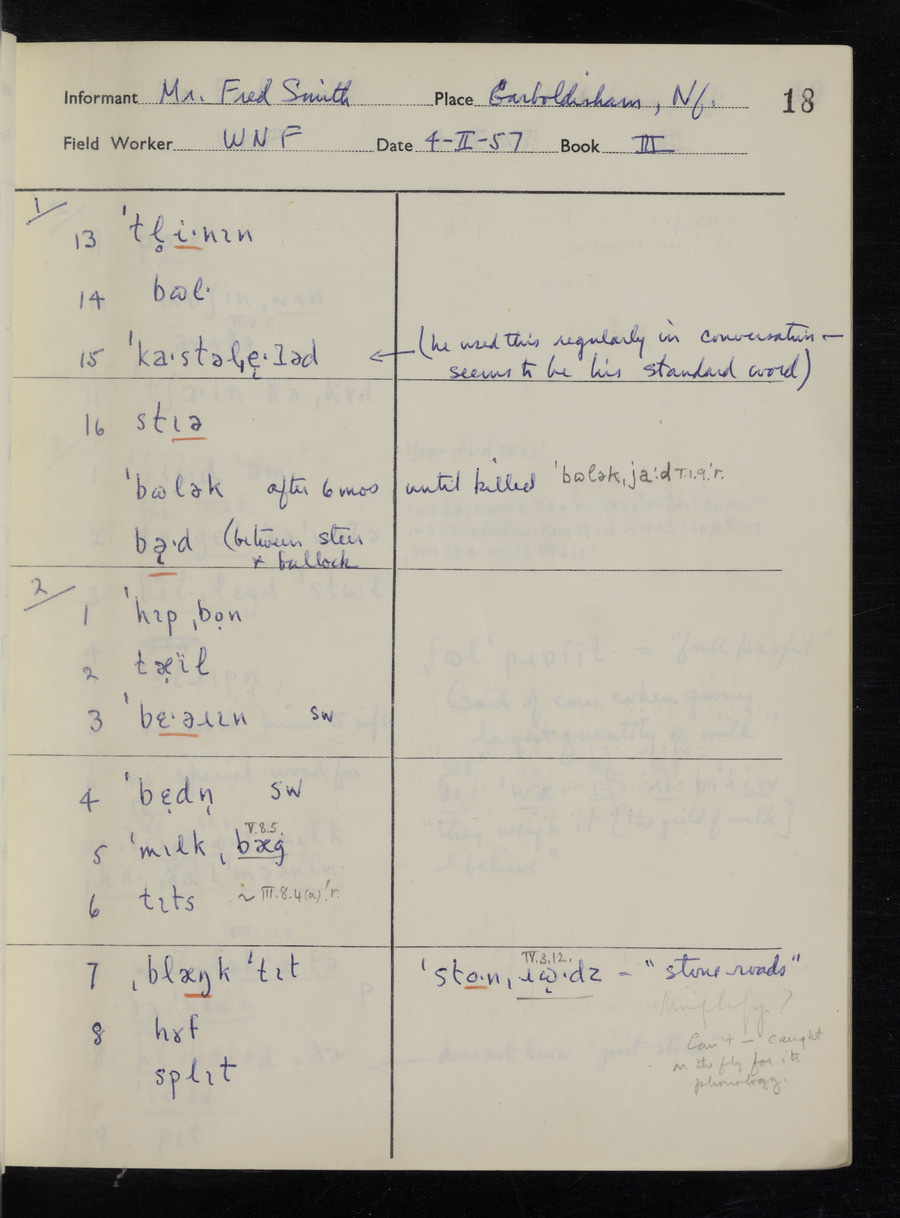 Informant Mr. Fred Smith Place Garboldisham, Nf. 18
Field Worker WNF Date 4-II-57 Book III
1/
13 ˈtl̥i·nın
14 bɷl·
15 ˈka·stəl̩ę·ɪəd ← (he used this regularly in conversation —
seems to be his standard word)
16 stıə
ˈbɷlək after 6 mos until killed ˈbɷlək,ja:d T.1.9.ˈr.
bą·d (between steer
& bullock
2/
1 ˈhıp ˌbọn
2 tæ̣ïl
3 ˈbɛ·əɹın sw
4 ˈbẹdn̩ sw
5 ˈmılk ˌbæg V.8.5.
6 tıts ~ III.8.4(a).ˈr.
7 ˌblæŋk ˈtıt ˈsto·n, ɹɷ̜·dz – "stone roads" IV.3.12.
Simplify?
8 hɤf
Can't — caught
on the fly for its
phonology.
splıt